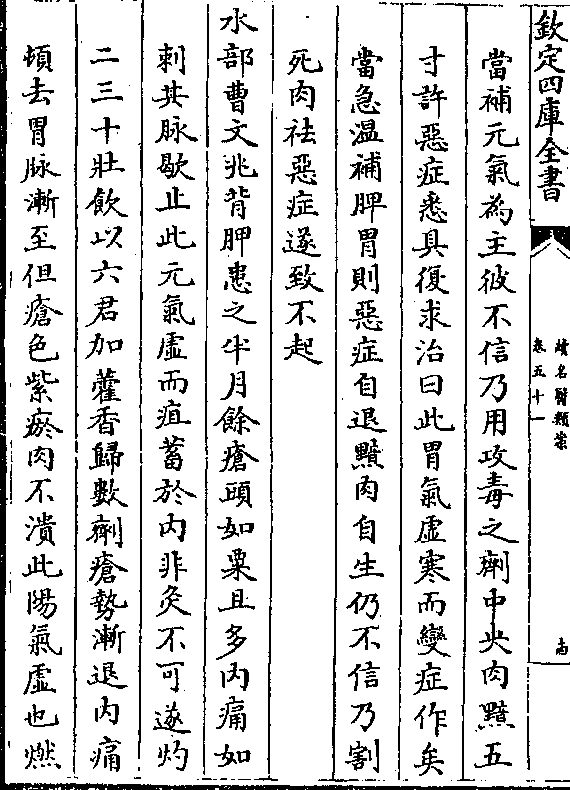 欽定四庫全書
續名醫類案
卷五十一
當補元氣為主彼不信乃用攻毒之劑中央肉黯五
寸許惡症悉具復求治曰此胃氣虛寒而變症作矣
當急温補脾胃則惡症自退黯肉自生仍不信乃割
死肉祛惡症遂致不起
水部曹文兆背胛患之半月餘瘡頭如粟且多内痛如
刺其脉歇止此元氣虛而疽蓄於内非灸不可遂灼
二三十壯飲以六君加藿香歸數劑瘡勢漸退内痛
頓去胃脉漸至但瘡色紫瘀肉不潰此陽氣虛也燃